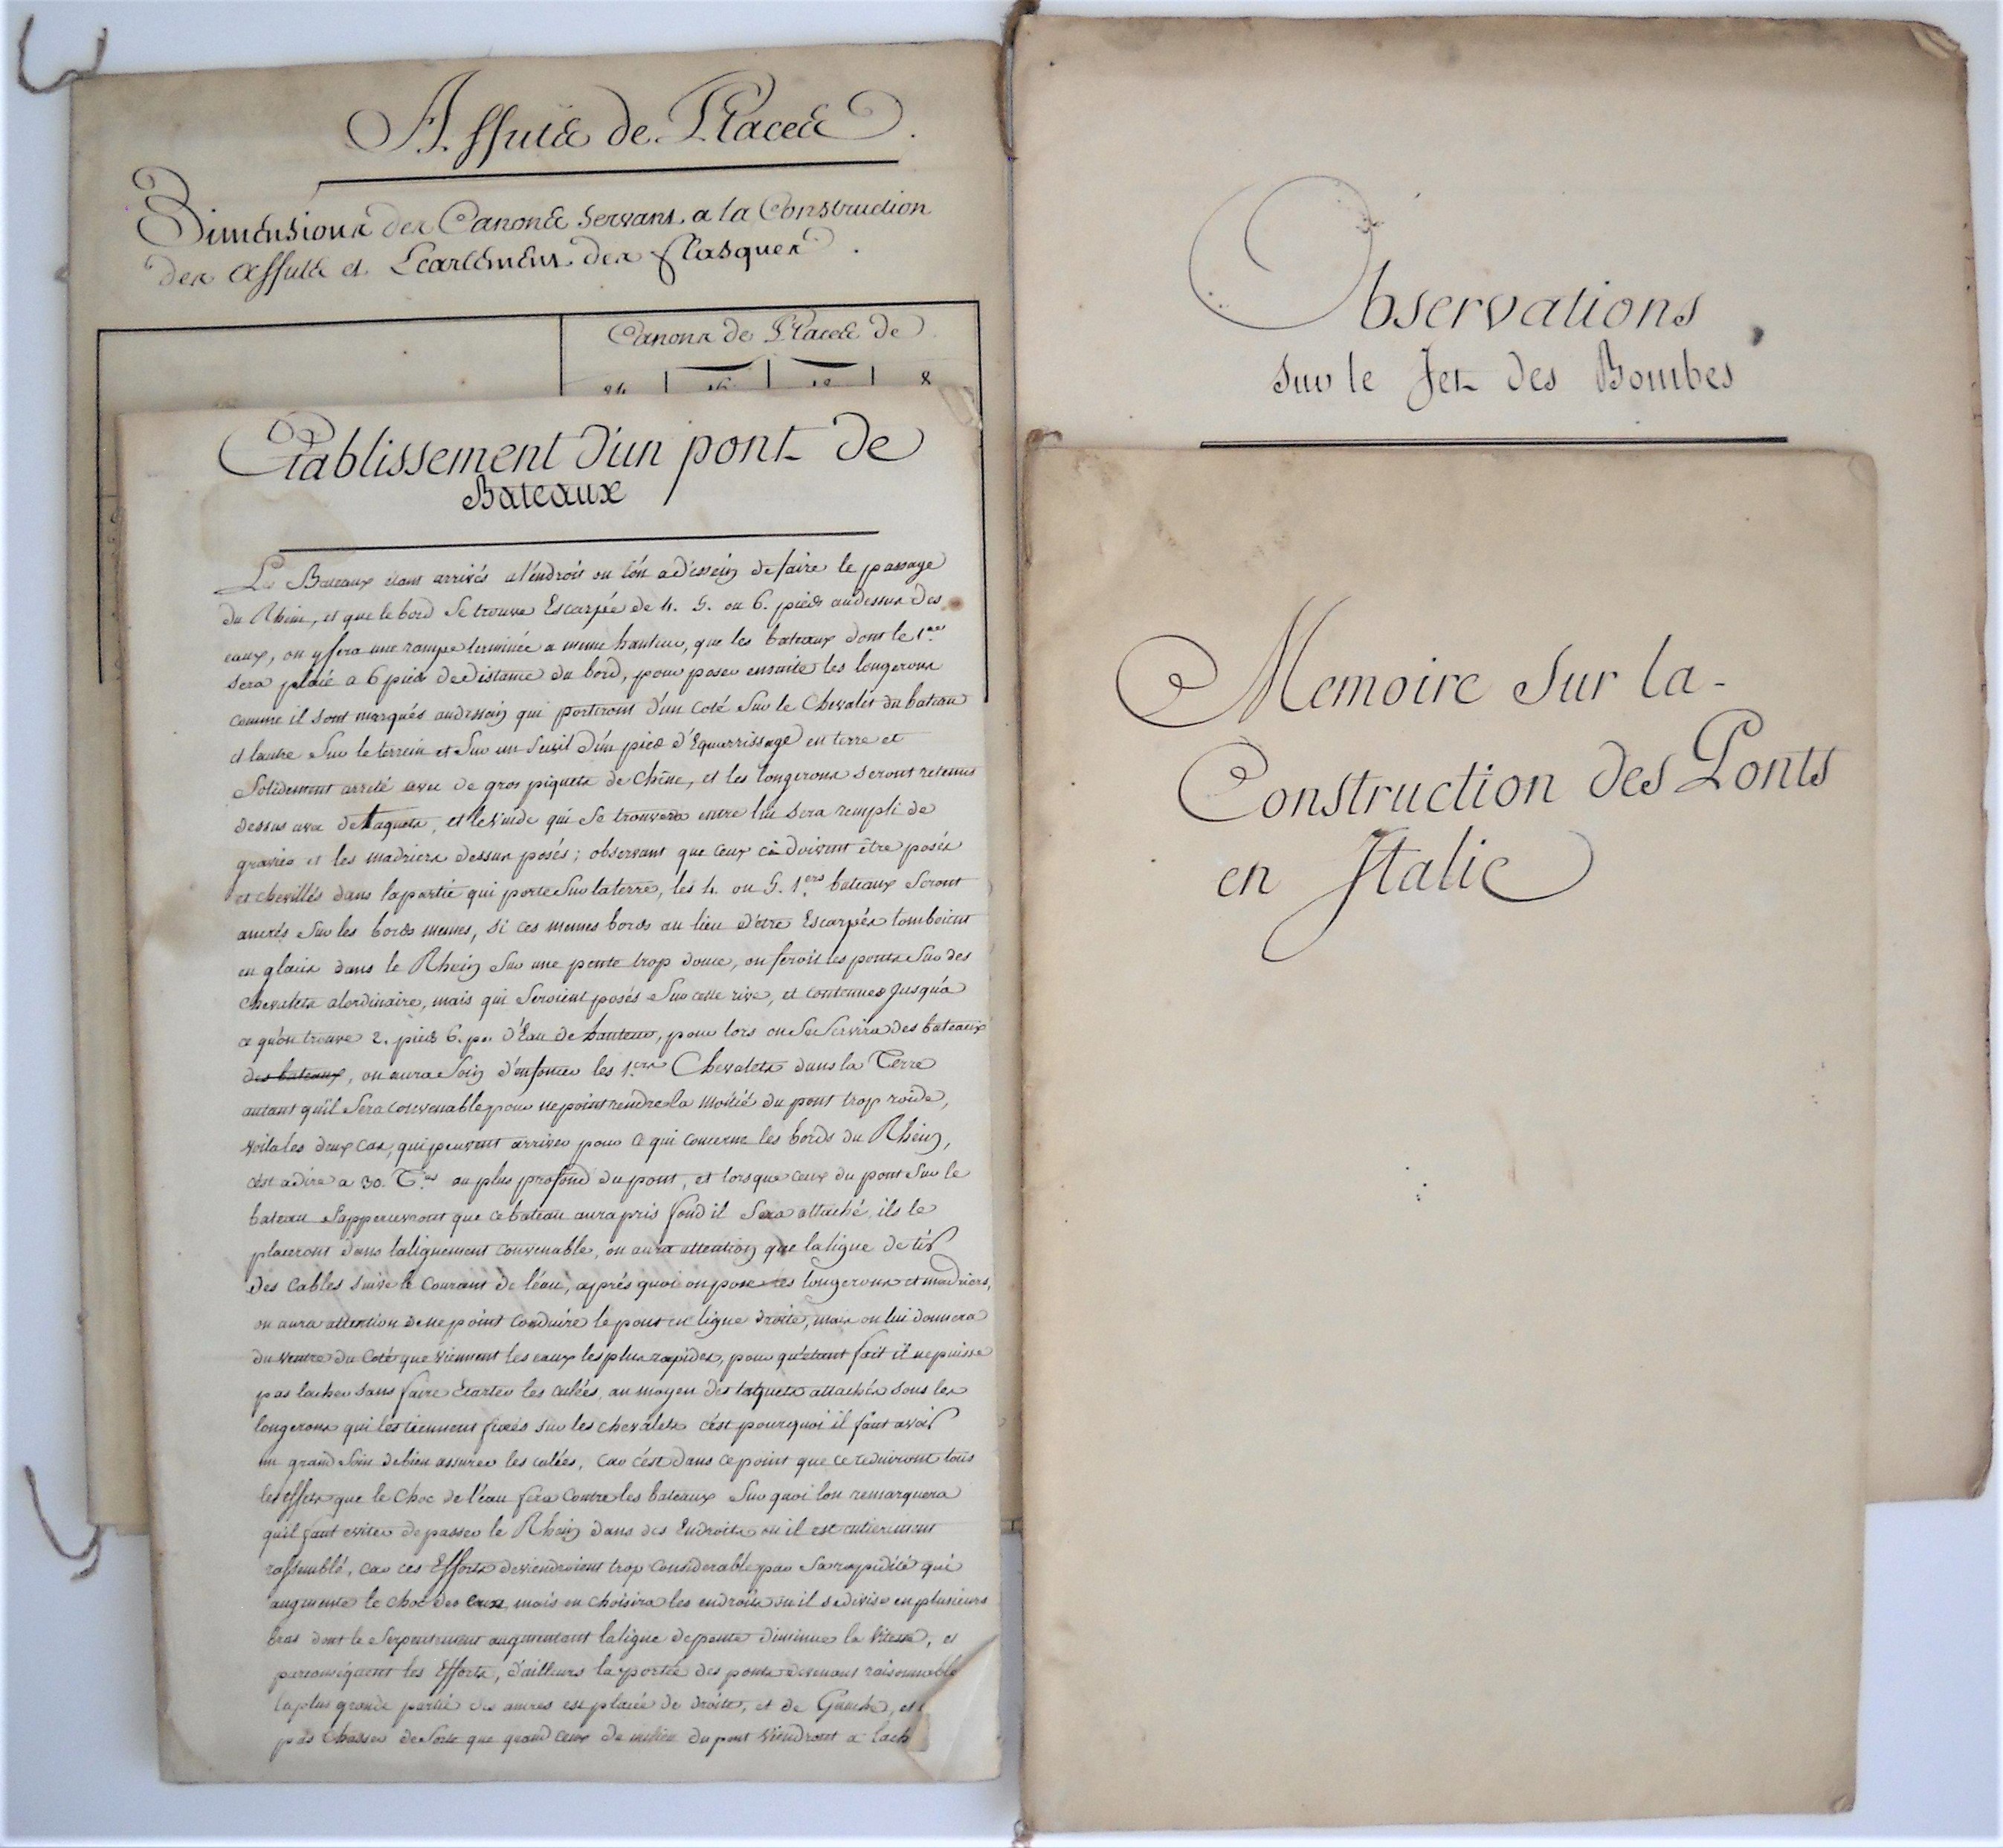 Affuts de Places.
Dimensions des Canons servans a la Construction
des affuts et Ecartement des flasques.
Canons de Places de
24 16 12 8
Etablissement d'un pont de
Bateaux
Les Bateaux étans arrivés a l'endroit ou l'on a dessein de faire le passage
du Rhein, et que le bord se trouve Escarpée de 4. 5. ou 6. pieds audessus des
eaux, on y fera une rampe terminée a meme hauteur, que les bateaux dont le 1.er
sera placé a 6 pieds de distance du bord, pour poser ensuite les longerons
comme il sont marqués au dessein qui porteront d'un coté sur le Chevalet du bateau
et lautre sur le terrein et sur un seuil d'un pied d'Equarrissage en terre et
solidement arrété avec de gros piquets de chêne, et les longerons seront retenus
dessus avec de taquets, et le vuide qui se trouvera entre lui sera rempli de
gravier et les madriers dessus posés; observant que ceux ci doivent être posés
et chevillés dans la partie qui porte sur la terre, les 4. ou 5. 1.ers bateaux seront
ancrés sur les bords memes, si ces memes bords au lieu d'etre Escarpés tomboient
en glacis dans le Rhein sur une pente trop douce, on feroit les ponts sur des
chevalets a lordinaire, mais qui seroient posés sur cette rive, et contenues jusqu'a
ce qu'on trouve 2. pieds 6. po. d'Eau de hauteur, pour lors on se servira des bateaux
des bateaux, on aura soin d'enfoncer les 1.ers Chevalets dans la Terre
autant qu'il sera convenable pour ne point rendre la moitié du pont trop roide,
voila les deux cas, qui peuvent arriver pour ce qui concerne les bords du Rhein,
c'est a dire a 30. T.es au plus profond du pont, et lorsque ceux du pont sur le
bateau s'appercevront que ce bateau aura pris fond il sera attaché ils le
placeront dans lalignement convenable, on aura attention que la ligne de tir
des cables suive le courant de l'eau, après quoi on pose les longerons et madriers,
on aura attention de ne point conduire le pont en ligne droite, mais on lui donnera
du ventre du Coté que viennent les eaux les plus rapides, pour qu'etant fait il ne puisse
pas lacher sans faire Ecarter les culées, au moyen des taquets attachés sous les
longerons qui les tiennent fixés sur les chevalets c'est pourquoi il faut avoir
un grand soin de bien assurer les culées, car c'est dans ce point que ce reduiront tous
les effets que le choc de l'eau fera contre les bateaux sur quoi lon remarquera
qu'il faut eviter de passer le Rhein dans des Endroits ou il est entierement
rassemblé, car ces Efforts deviendroient trop considerable par sa rapidité qui
augmente le choc des eaux mais on choisira les endroits ou il se divise en plusieurs
bras dont le serpentement augmentant la ligne de pente diminue la vitesse, et
parconséquent les Efforts, d'ailleurs la portée des ponts devenant raisonnable
la plus grande partie des ancres est placée de droite, et de Gauche, et
pas chasser de sorte que quand ceux du milieu du pont viendront a lach
Observations
sur le Jet des Bombes
Memoire sur la
Construction des Ponts
en Italie